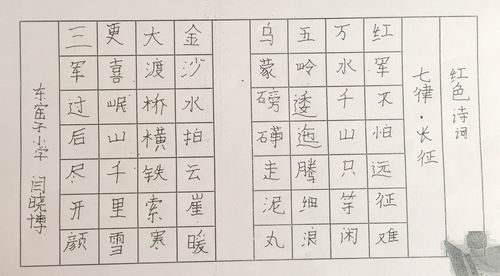 红色诗词
七律·长征
红军不怕远征难
万水千山只等闲
五岭逶迤腾细浪
乌蒙磅礴走泥丸
金沙水拍云崖暖
大渡桥横铁索寒
更喜岷山千里雪
三军过后尽开颜
东窑子小学 闫晓博